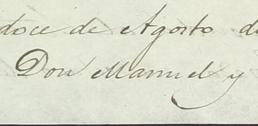 doce de Agosto de
Don Manuel y